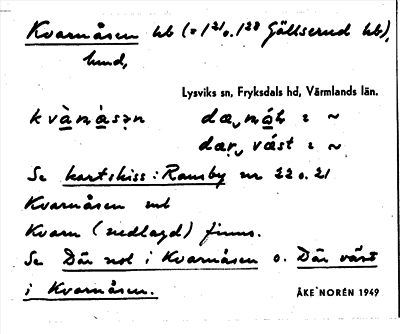 Kvarnåsen hb (= 1²¹ o. 1²⁸ Gällserud hb),
hmd,
Lysviks sn, Fryksdals hd, Värmlands län.
kvàṇàsən dæ, nóḷ i ~
dær, vást i ~
Se kartskiss: Ransby nr 22 o. 21
Kvarnåsen
Kvarn (nedlagd) finns.
Se Där nol i Kvarnåsen o. Där väst
i Kvarnåsen.
ÅKE NORÉN 1949